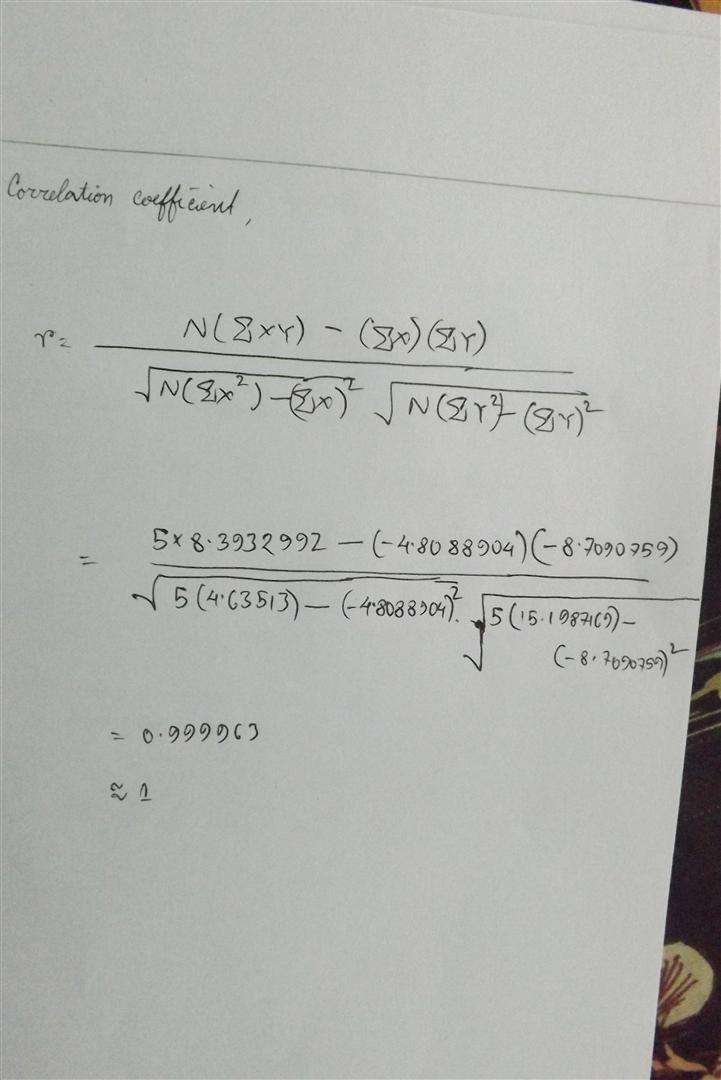 Correlation coefficient,
r = N(ΣXY) - (ΣX)(ΣY)
√N(ΣX²) - (ΣX)² √N(ΣY²) - (ΣY)²
= 5×8.3932992 - (-4.8088904)(-8.7090759)
√5(4.63513) - (-4.8088904)². √5(15.1987169) -
(-8.7090759)²
= 0.999963
≈ 1